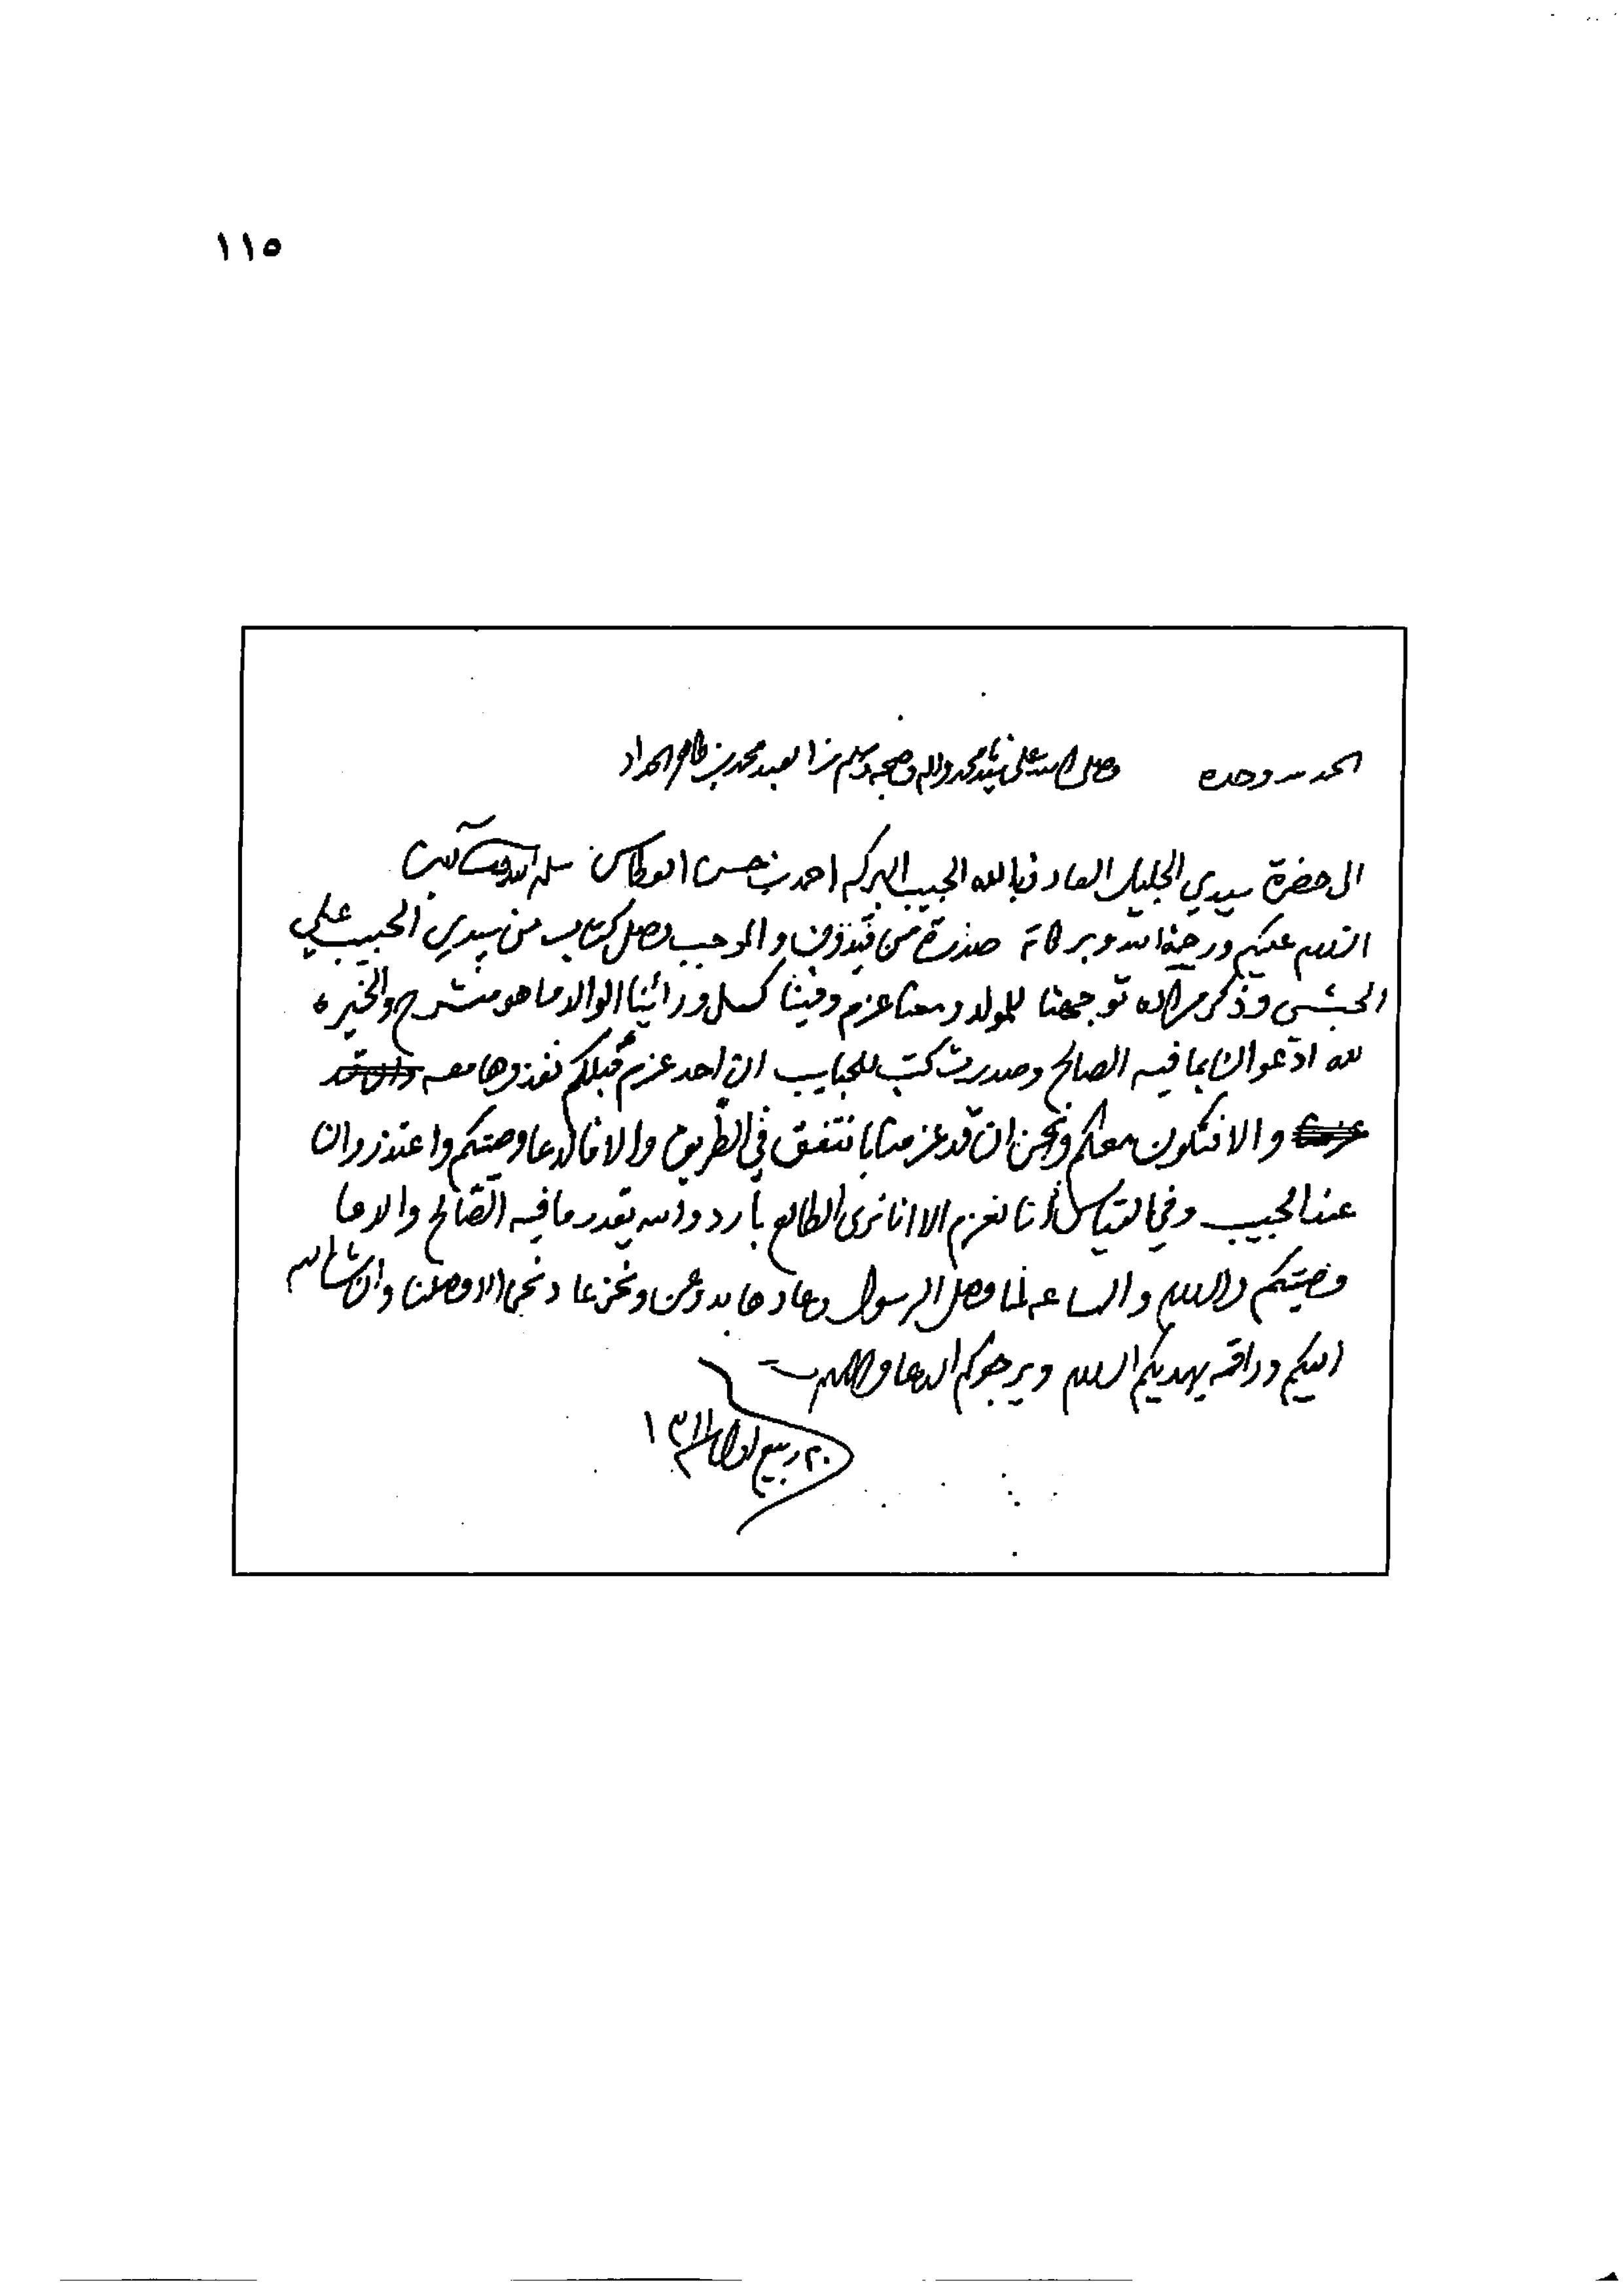 ١١٥
الحمد لله وحده وصلى الله على سيدنا محمد واله وصحبه وسلم من العبد محمد بن طاهر الحداد
الى حضرة سيدي الجليل العارف بالله الحبيب البركه احمد بن حسن العطاس سلمه الله آمين
السلام عليكم ورحمة الله وبركاته صدرة من قيدون والموجب وصل كتاب من سيدي الحبيب علي
الحبشي وذكر مراده توجهنا للمولد ومعنا عزم وفينا كسل ورائينا الوالد ما هو منشرح والخيره
لله ادعوا لنا بما فيه الصالح وصدرت كتب للحبايب ان احد عزم قبلكم نفذوها معه وان قد
عزمنا والا فتكون معكم ونحن ان قد عزمنا با نتفق في الطريق والا فالدعا وصيتكم واعتذروا لنا
عند الحبيب وفي القياس أنا نعزم الا انا نرى الطالع بارد والله يقدر ما فيه الصالح والدعا
وصيتكم والسلام والساعه لما وصل الرسول وعاد ونحن الا وصلنا وان شاء الله
اليكم وراقمه يهديكم السلام ويرجوكم الدعا
٢٠ ربيع اول ١٣١١